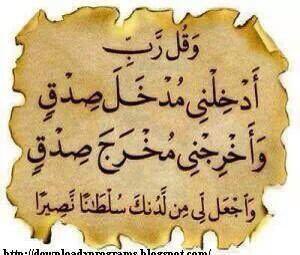 وَقُل رَّبِّ
أَدْخِلْنِي مُدْخَلَ صِدْقٍ
وَأَخْرِجْنِي مُخْرَجَ صِدْقٍ
وَٱجْعَل لِّي مِن لَّدُنكَ سُلْطَٰنًا نَّصِيرًا
http://downloadxprograms.blogspot.com/